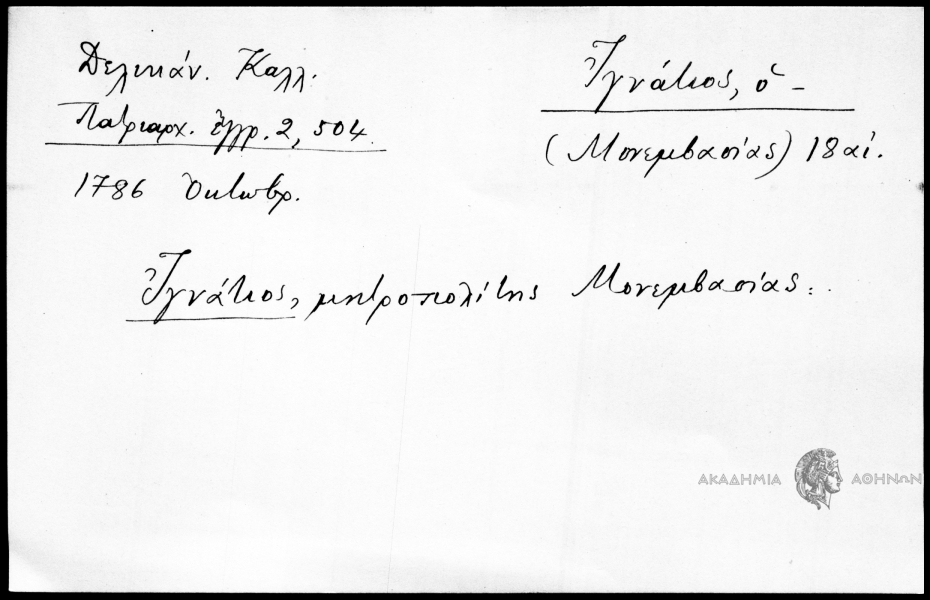 Δελικάν. Καλλ.
Πατριαρχ. ἔγγρ. 2, 504.
1786 Ὀκτωβρ.
Ἰγνάτιος, ὁ –
(Μονεμβασίας) 18 αἰ.
Ἰγνάτιος, μητροπολίτης Μονεμβασίας:.
ΑΚΑΔΗΜΙΑ ΑΘΗΝΩΝ